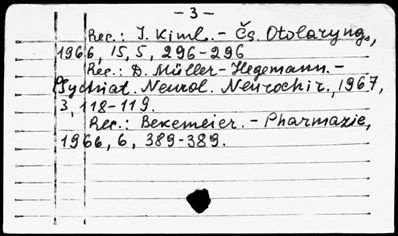 - 3 -
Rec.: J. Kiml. - Čs. Otolaryng.,
1966, 15, 5, 296-296
Rec.: D. Müller-Hegemann. -
Psychiat. Neurol. Neurochir., 1967,
3, 118-119.
Rec.: Bekemeier. - Pharmazie,
1966, 6, 389-389.